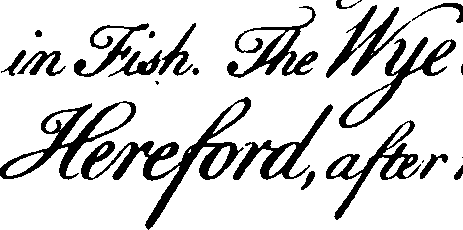 in Fish. The Wye
Hereford, after